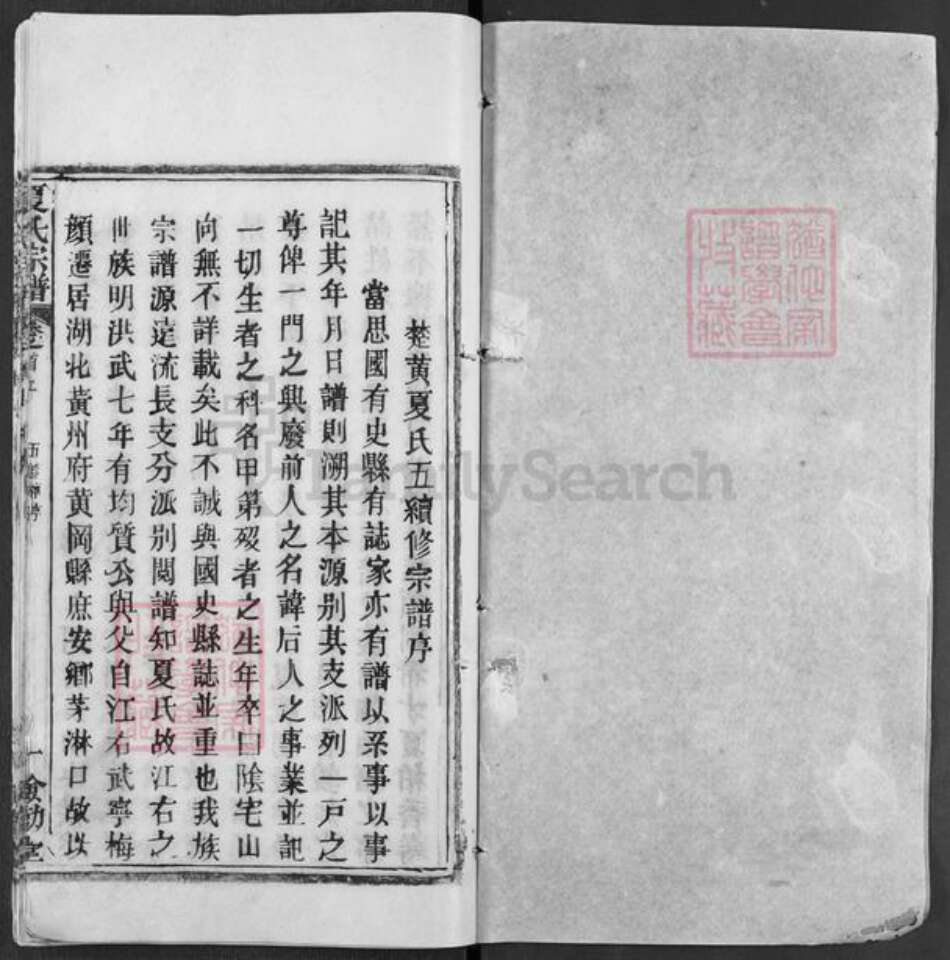 楚黄夏氏五續修宗譜序
當思國有史縣有誌家亦有譜以系事以事
記其年月日譜則溯其本源别其支派列一戸之
尊俾一門之興廢前人之名諱后人之事業並記
一切生者之科名甲第殁者之生年卒曰陰宅山
向無不詳載矣此不誠與國史縣誌並重也我族
宗譜源遠流長支分派别閲譜知夏氏故江右之
世族明洪武七年有均質公與父自江右武寧梅
顔遷居湖北黄州府黄岡縣庶安鄉茅淋口故以
夏氏宗譜
卷之首
一
會
譜學會
收藏
FamilySearch